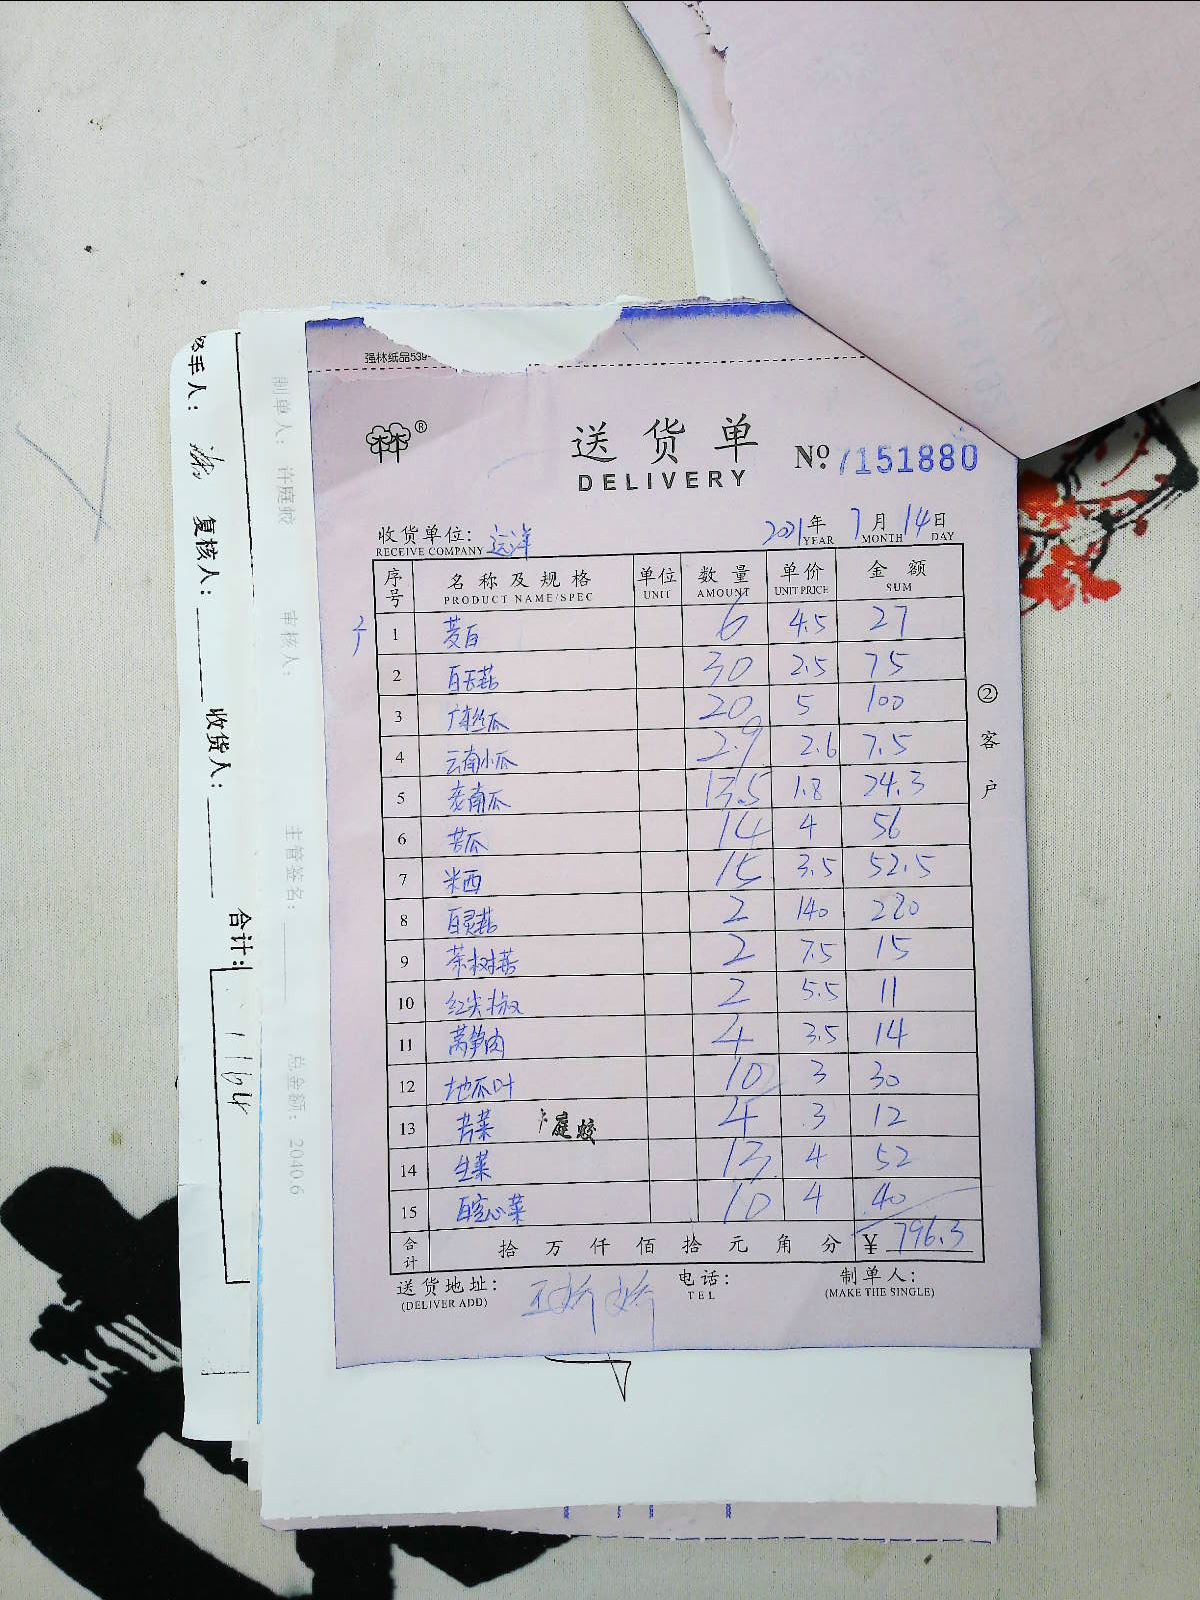 强林纸品539-
®
送货单
DELIVERY
No. 7151880
收货单位: 远洋
RECEIVE COMPANY
2021年 7月 14日
YEAR MONTH DAY
序号 名称及规格 单位 数量 单价 金额
PRODUCT NAME/SPEC UNIT AMOUNT UNIT PRICE SUM
1 茭白 6 4.5 27
2 白灵菇 30 2.5 75
3 广东丝瓜 20 5 100
4 云南小瓜 2.9 2.6 7.5
5 老南瓜 13.5 1.8 24.3
6 苦瓜 14 4 56
7 米西 15 3.5 52.5
8 白灵菇 2 140 280
9 茶树菇 2 7.5 15
10 红尖椒 2 5.5 11
11 莴笋肉 4 3.5 14
12 地瓜叶 10 3 30
13 苦菜 庭蛟 4 3 12
14 生菜 13 4 52
15 白空心菜 10 4 40
合计 拾万仟佰拾元角分 ¥ 796.3
送货地址: 电话: 制单人:
(DELIVER ADD) TEL (MAKE THE SINGLE)
②客户
手人:
复核人:
收货人:
合计:
1164
制单人: 许庭蛟
审核人:
主管签名:
总金额: 2040.6